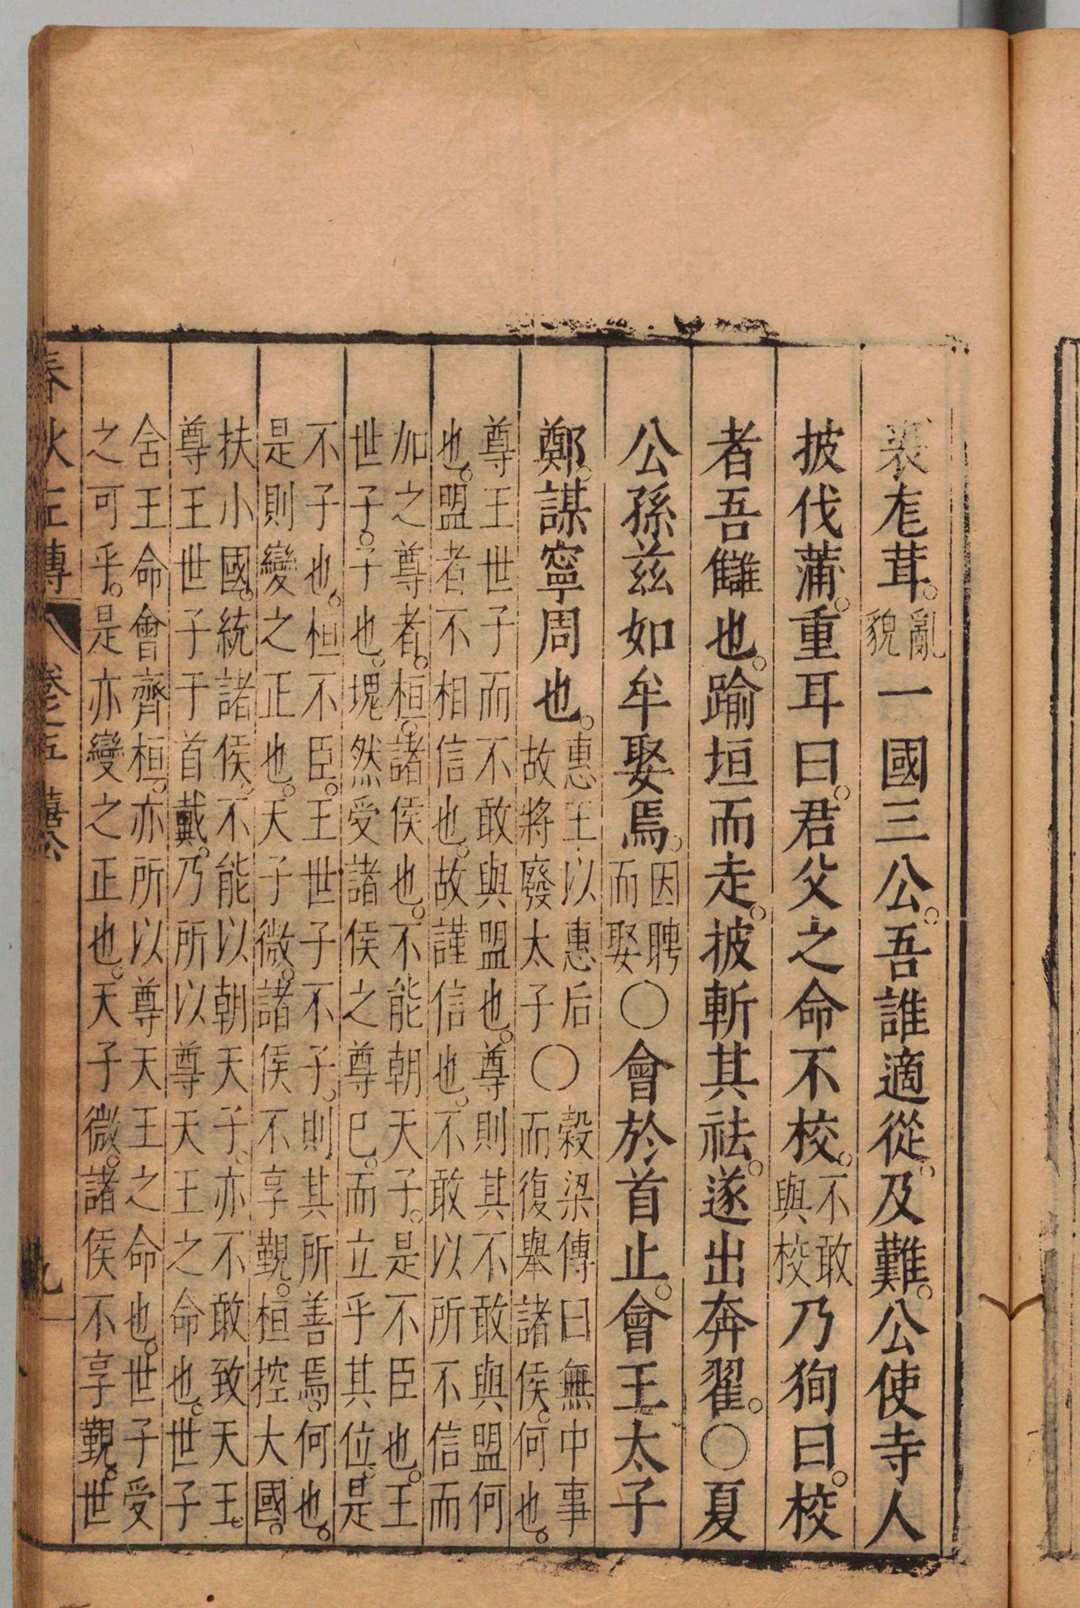 裘尨茸。亂貌一國三公。吾誰適從。及難。公使寺人
披伐蒲。重耳曰。君父之命不校。不敢與校乃狥曰。校
者吾讎也。踰垣而走。披斬其祛。遂出奔翟。〇夏
公孫茲如牟娶焉。因聘而娶〇會於首止。會王太子
鄭。謀寧周也。惠王以惠后故將廢太子〇穀梁傳曰無中事而復舉諸侯。何也。
尊王世子而不敢與盟也。尊則其不敢與盟何
也。盟者不相信也。故謹信也。不敢以所不信而
加之尊者。桓。諸侯也。不能朝天子。是不臣也。王
世子。子也。塊然受諸侯之尊已。而立乎其位。是
不子也。桓不臣。王世子不子。則其所善焉。何也。
是則變之正也。天子微。諸侯不享覲。桓控大國。
扶小國。統諸侯。不能以朝天子。亦不敢致天王。
尊王世子于首戴。乃所以尊天王之命也。世子
含王命會齊桓。亦所以尊天王之命也。世子受
之可乎。是亦變之正也。天子微。諸侯不享覲。世
春秋左傳 卷之五 僖公 九